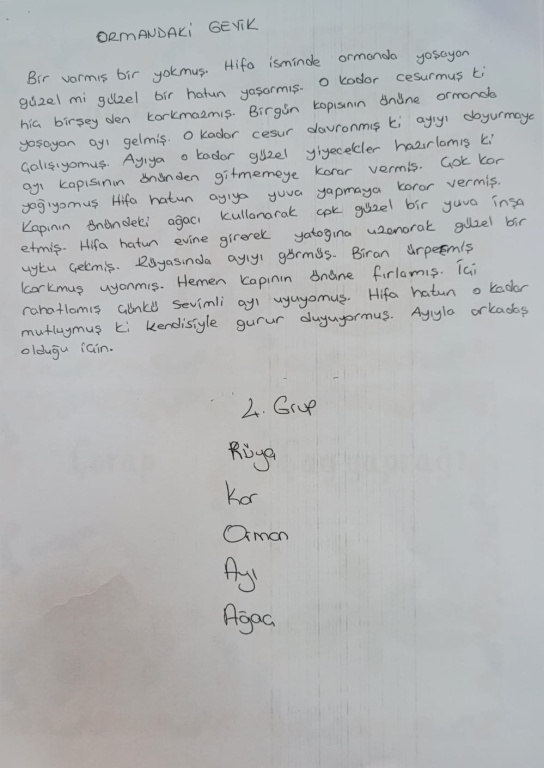 ORMANDAKİ GEYİK
Bir varmış bir yokmuş. Hifa isminde ormanda yaşayan
güzel mi güzel bir hatun yaşarmış. O kadar cesurmuş ki
hiç birşeyden korkmazmış. Birgün kapısının önüne ormanda
yaşayan ayı gelmiş. O kadar cesur davranmış ki ayıyı doyurmaya
çalışıyomuş. Ayıya o kadar güzel yiyecekler hazırlamış ki
ayı kapısının önünden gitmemeye karar vermiş. Çok kar
yağıyomuş Hifa hatun ayıya yuva yapmaya karar vermiş.
Kapının önündeki ağacı kullanarak çok güzel bir yuva inşa
etmiş. Hifa hatun evine girerek yatağına uzanarak güzel bir
uyku çekmiş. Rüyasında ayıyı görmüş. Biran ürpermiş
korkmuş uyanmış. Hemen kapının önüne fırlamış. İçi
rahatlamış çünkü sevimli ayı uyuyomuş. Hifa hatun o kadar
mutluymuş ki kendisiyle gurur duyuyormuş. Ayıyla arkadaş
olduğu için.
4. Grup
Rüya
Kar
Orman
Ayı
Ağaç